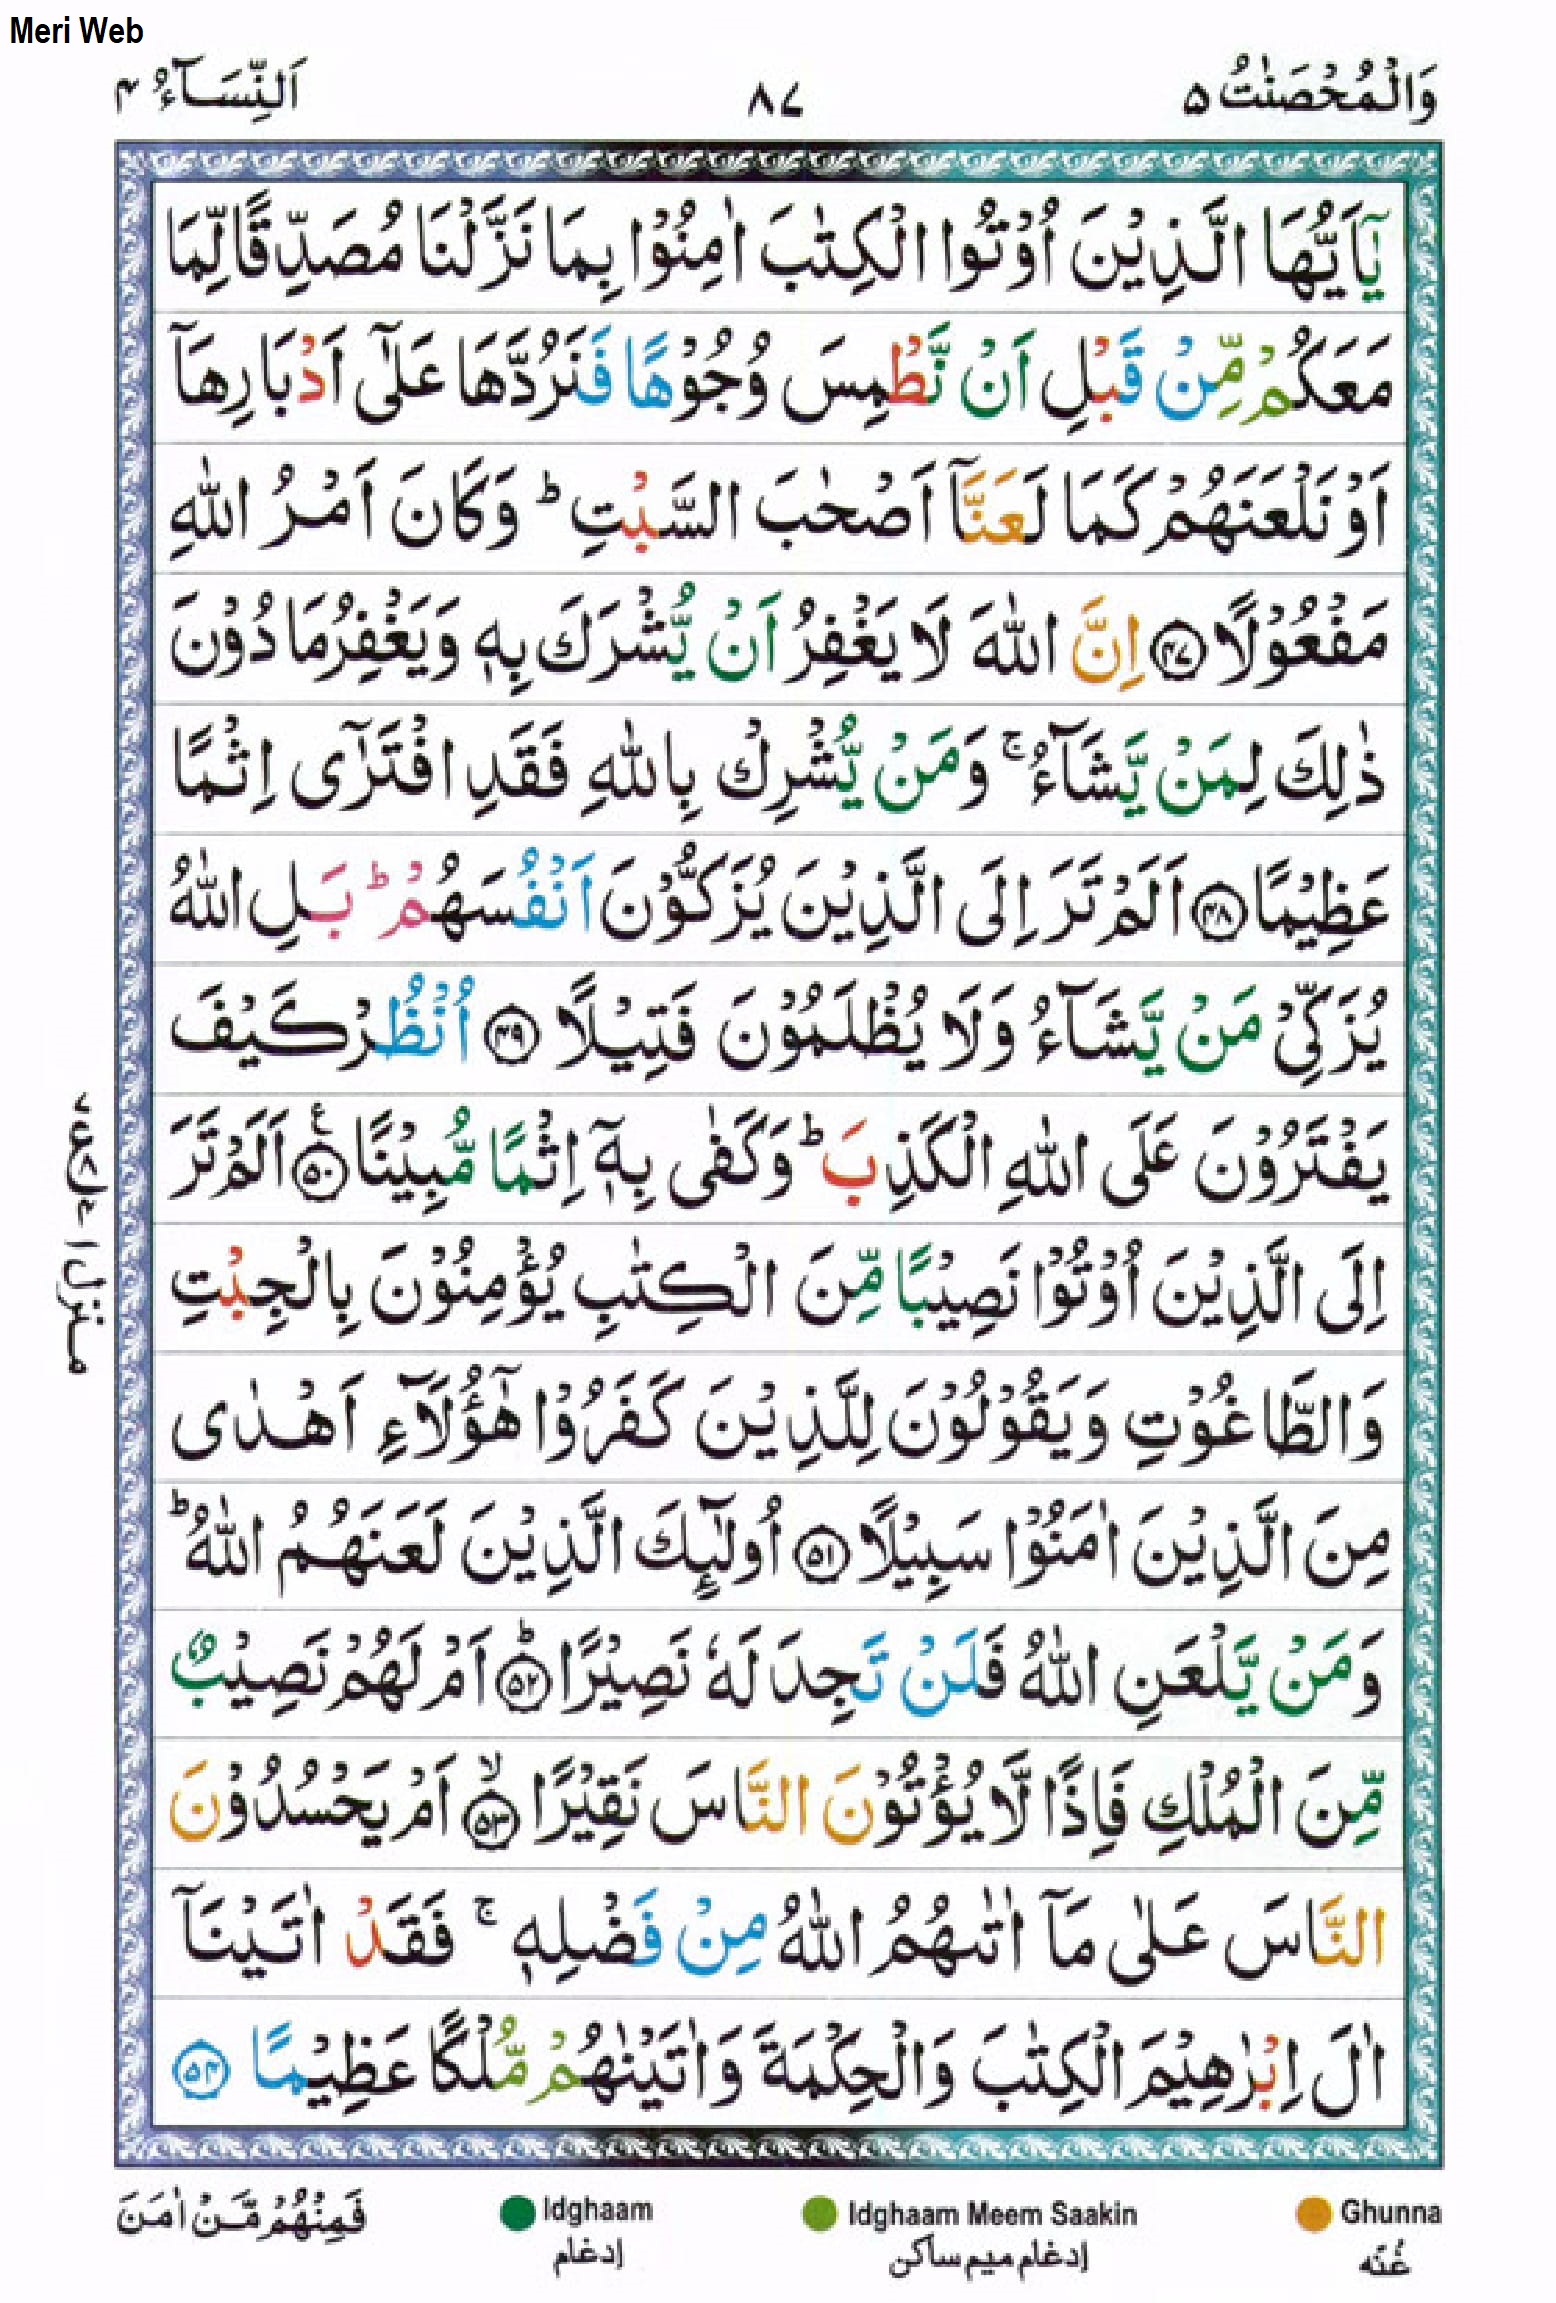 Meri Web
وَالْمُحْصَنٰتُ ۵
۸۷
اَلنِّسَآءُ ۴
يٰٓاَيُّهَا الَّذِيْنَ اُوْتُوا الْكِتٰبَ اٰمِنُوْا بِمَا نَزَّلْنَا مُصَدِّقًا لِّمَا
مَعَكُمْ مِّنْ قَبْلِ اَنْ نَّطْمِسَ وُجُوْهًا فَنَرُدَّهَا عَلٰٓى اَدْبَارِهَآ
اَوْ نَلْعَنَهُمْ كَمَا لَعَنَّآ اَصْحٰبَ السَّبْتِ ؕ وَكَانَ اَمْرُ اللّٰهِ
مَفْعُوْلًا ﴿۴۷﴾ اِنَّ اللّٰهَ لَا يَغْفِرُ اَنْ يُّشْرَكَ بِهٖ وَيَغْفِرُ مَا دُوْنَ
ذٰلِكَ لِمَنْ يَّشَآءُ ۚ وَمَنْ يُّشْرِكْ بِاللّٰهِ فَقَدِ افْتَرٰٓى اِثْمًا
عَظِيْمًا ﴿۴۸﴾ اَلَمْ تَرَ اِلَى الَّذِيْنَ يُزَكُّوْنَ اَنْفُسَهُمْ ؕ بَلِ اللّٰهُ
يُزَكِّىْ مَنْ يَّشَآءُ وَلَا يُظْلَمُوْنَ فَتِيْلًا ﴿۴۹﴾ اُنْظُرْ كَيْفَ
يَفْتَرُوْنَ عَلَى اللّٰهِ الْكَذِبَ ؕ وَكَفٰى بِهٖۤ اِثْمًا مُّبِيْنًا ﴿۵۰﴾ ع اَلَمْ تَرَ
اِلَى الَّذِيْنَ اُوْتُوْا نَصِيْبًا مِّنَ الْكِتٰبِ يُؤْمِنُوْنَ بِالْجِبْتِ
وَالطَّاغُوْتِ وَيَقُوْلُوْنَ لِلَّذِيْنَ كَفَرُوْا هٰٓؤُلَآءِ اَهْدٰى
مِنَ الَّذِيْنَ اٰمَنُوْا سَبِيْلًا ﴿۵۱﴾ اُولٰٓئِكَ الَّذِيْنَ لَعَنَهُمُ اللّٰهُ ؕ
وَمَنْ يَّلْعَنِ اللّٰهُ فَلَنْ تَجِدَ لَهٗ نَصِيْرًا ﴿۵۲﴾ؕ اَمْ لَهُمْ نَصِيْبٌ
مِّنَ الْمُلْكِ فَاِذًا لَّا يُؤْتُوْنَ النَّاسَ نَقِيْرًا ﴿۵۳﴾ۙ اَمْ يَحْسُدُوْنَ
النَّاسَ عَلٰى مَآ اٰتٰىهُمُ اللّٰهُ مِنْ فَضْلِهٖ ۚ فَقَدْ اٰتَيْنَآ
اٰلَ اِبْرٰهِيْمَ الْكِتٰبَ وَالْحِكْمَةَ وَاٰتَيْنٰهُمْ مُّلْكًا عَظِيْمًا ﴿۵۴﴾
منزل ۱
فَمِنْهُمْ مَّنْ اٰمَنَ
Idghaam
إدغام
Idghaam Meem Saakin
إدغام ميم ساكن
Ghunna
غُنّه